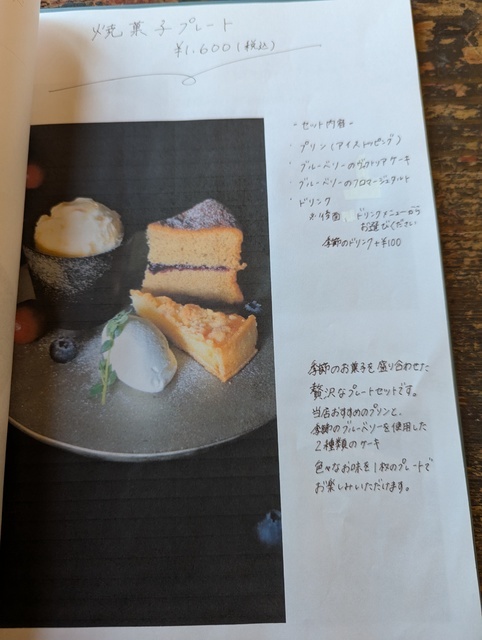 焼菓子プレート
¥1,600(税込)
- セット内容 -
・プリン(アイストッピング)
・ブルーベリーのヴィクトリアケーキ
・ブルーベリーのフロマージュタルト
・ドリンク
ドリンクメニューから
お選びください
季節のドリンク+¥100
季節のお菓子を盛り合わせた
贅沢なプレートセットです。
当店おすすめのプリンと、
季節のブルーベリーを使用した
2種類のケーキ
色々なお味を1枚のプレートで
お楽しみいただけます。